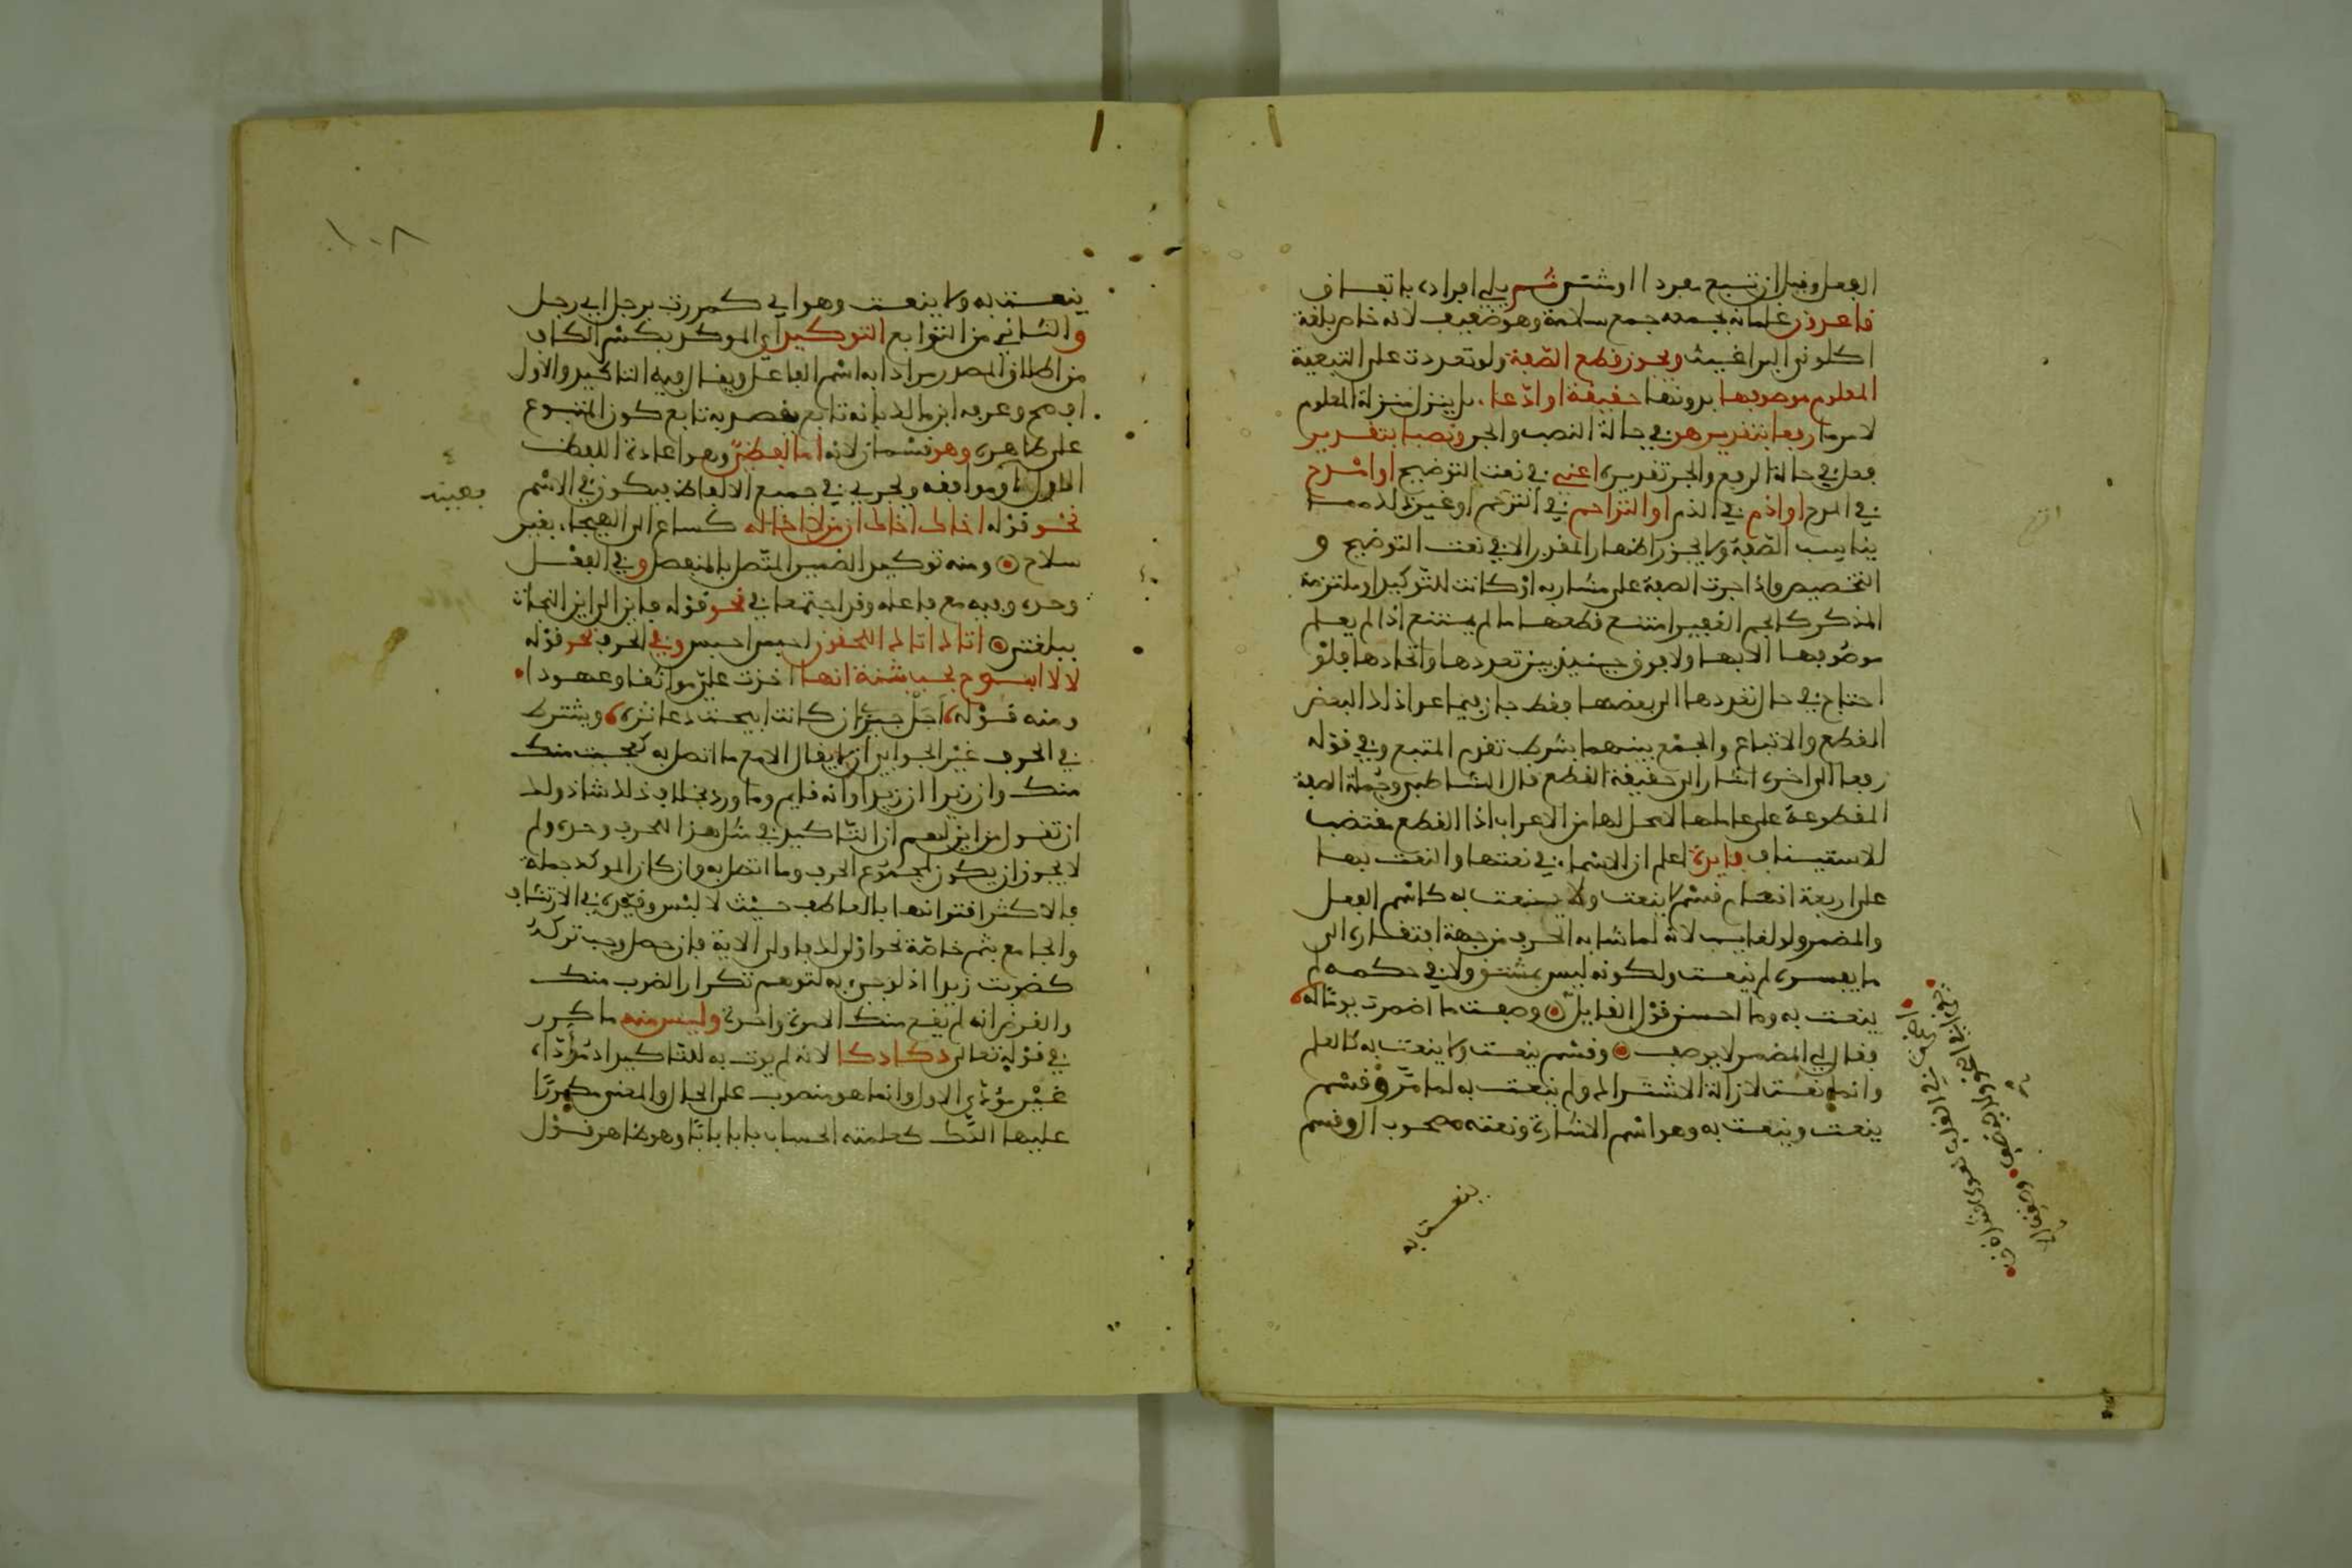 الفعل وقيل ان تتبع مفردا او مثنى ثم يلي افراده باتصاف
قاعدون غلمانه بجمعه جمع سلامة وهو ضعيف لانه خاص بلغة
اكلوني البراغيث ويجوز قطع الصفة ولو تعددت على التبعية
المعلوم موصوفها بدونها حقيقة او ادعاء بان ينزل منزلة المعلوم
لامر ما رفعا بتقدير هو في حالة النصب والجر ونصبا بتقدير
فعل في حالة الرفع والجر تقديره اعني في نعت التوضيح او امدح
في المدح او اذم في الذم او الترحم في الترحم او غير ذلك مما
يناسب الصفة ولا يجوز اظهار المقدر الا في نعت التوضيح و
التخصيص واذا جرت الصفة على مشار به او كانت للتوكيد او ملتزمة
الذكر كالجم الغفير امتنع قطعها ما لم يمتنع اذا لم يعلم
موصوفها الا بها ولا فرق حينئذ بين تعددها واتحادها فلو
احتاج في حال تعددها الى بعضها فقط جاز فيما عدا ذلك البعض
القطع والاتباع والجمع بينهما بشرط تقدم المتبع وفي قوله
رفعا الى اخره اشار الى حقيقة القطع قال الشاطبي وجملة الصفة
المقطوعة على عاملها لا محل لها من الاعراب اذ القطع مقتضب
للاستيناف فايدة اعلم ان الاسماء في نعتها والنعت بها
على اربعة اقسام قسم لا ينعت ولا ينعت به كاسم الفعل
والمضمر ولو لغايب لانه لما شابه الحرف من جهة افتقاره الى
ما يفسره لم ينعت ولكونه ليس بمشتق ولا في حكمه لم
ينعت به وما احسن قول القايل وصفت ما اضمرت يوما له
فقال لي المضمر لا يوصف وقسم ينعت ولا ينعت به كالعلم
وانما نعت لازالة الاشتراك ولم ينعت به لما مر وقسم
ينعت وينعت به وهو اسم الاشارة ونعته مصحوب ال وقسم
ينعت به
ينعت به ولا ينعت وهو اي كمررت برجل اي رجل
والثاني من التوابع التوكيد اي الموكد بكسر الكاف
من اطلاق المصدر مرادا به اسم الفاعل ويقال فيه التاكيد والاول
افصح وعرفه ابن مالك بانه تابع يقصد به تابع كون المتبوع
على ظاهره وهو قسمان لانه اما لفظي وهو اعادة اللفظ
الاول او موافقه ويجري في جميع الالفاظ فيكون في الاسم
نحو قوله اخاك اخاك ان من لا اخا له كساع الى الهيجاء بغير
سلاح ومنه توكيد الضمير المتصل بالمنفصل وفي الفعل
وحده وفيه مع فاعله وقد اجتمعا في نحو قوله فاين الى اين النجاة
ببغلتي اتاك اتاك اللاحقون احبس احبس وفي الحرف نحو قوله
لا لا ابوح بحب بثنة انها اخذت علي مواثقا وعهودا
ومنه قوله اجل جير ان كانت ابيحت دعاثره ويشترط
في الحرف غير الجوابي ان لا يقال الا مع ما اتصل به كعجبت منك
منك وان زيدا ان زيدا او انه قايم وما ورد بخلاف ذلك شاذ ولك
ان تقول من اين لهم ان التاكيد في مثل هذا للحرف وحده ولم
لا يجوز ان يكون لمجموع الحرف وما اتصل به وان كان الموكد جملة
فالاكثر اقترانها بالعاطف حيث لا لبس وقيده في الارتشاف
والجامع بثم خاصة نحو اولى لك فاولى الاية فان حصل وجب تركه
كضربت زيدا اذ لو جيء به لتوهم تكرار الضرب منك
والغرض انه لم يقع منك الا مرة واحدة وليس منه ما كرر
في قوله تعالى دكا دكا لانه لم يوت به للتاكيد اذ مؤداه
غير مؤدى الاول وانما هو منصوب على الحال والمعنى مكررا
عليها الدك كعلمته الحساب بابا بابا وهو ظاهر قول
١٠٨